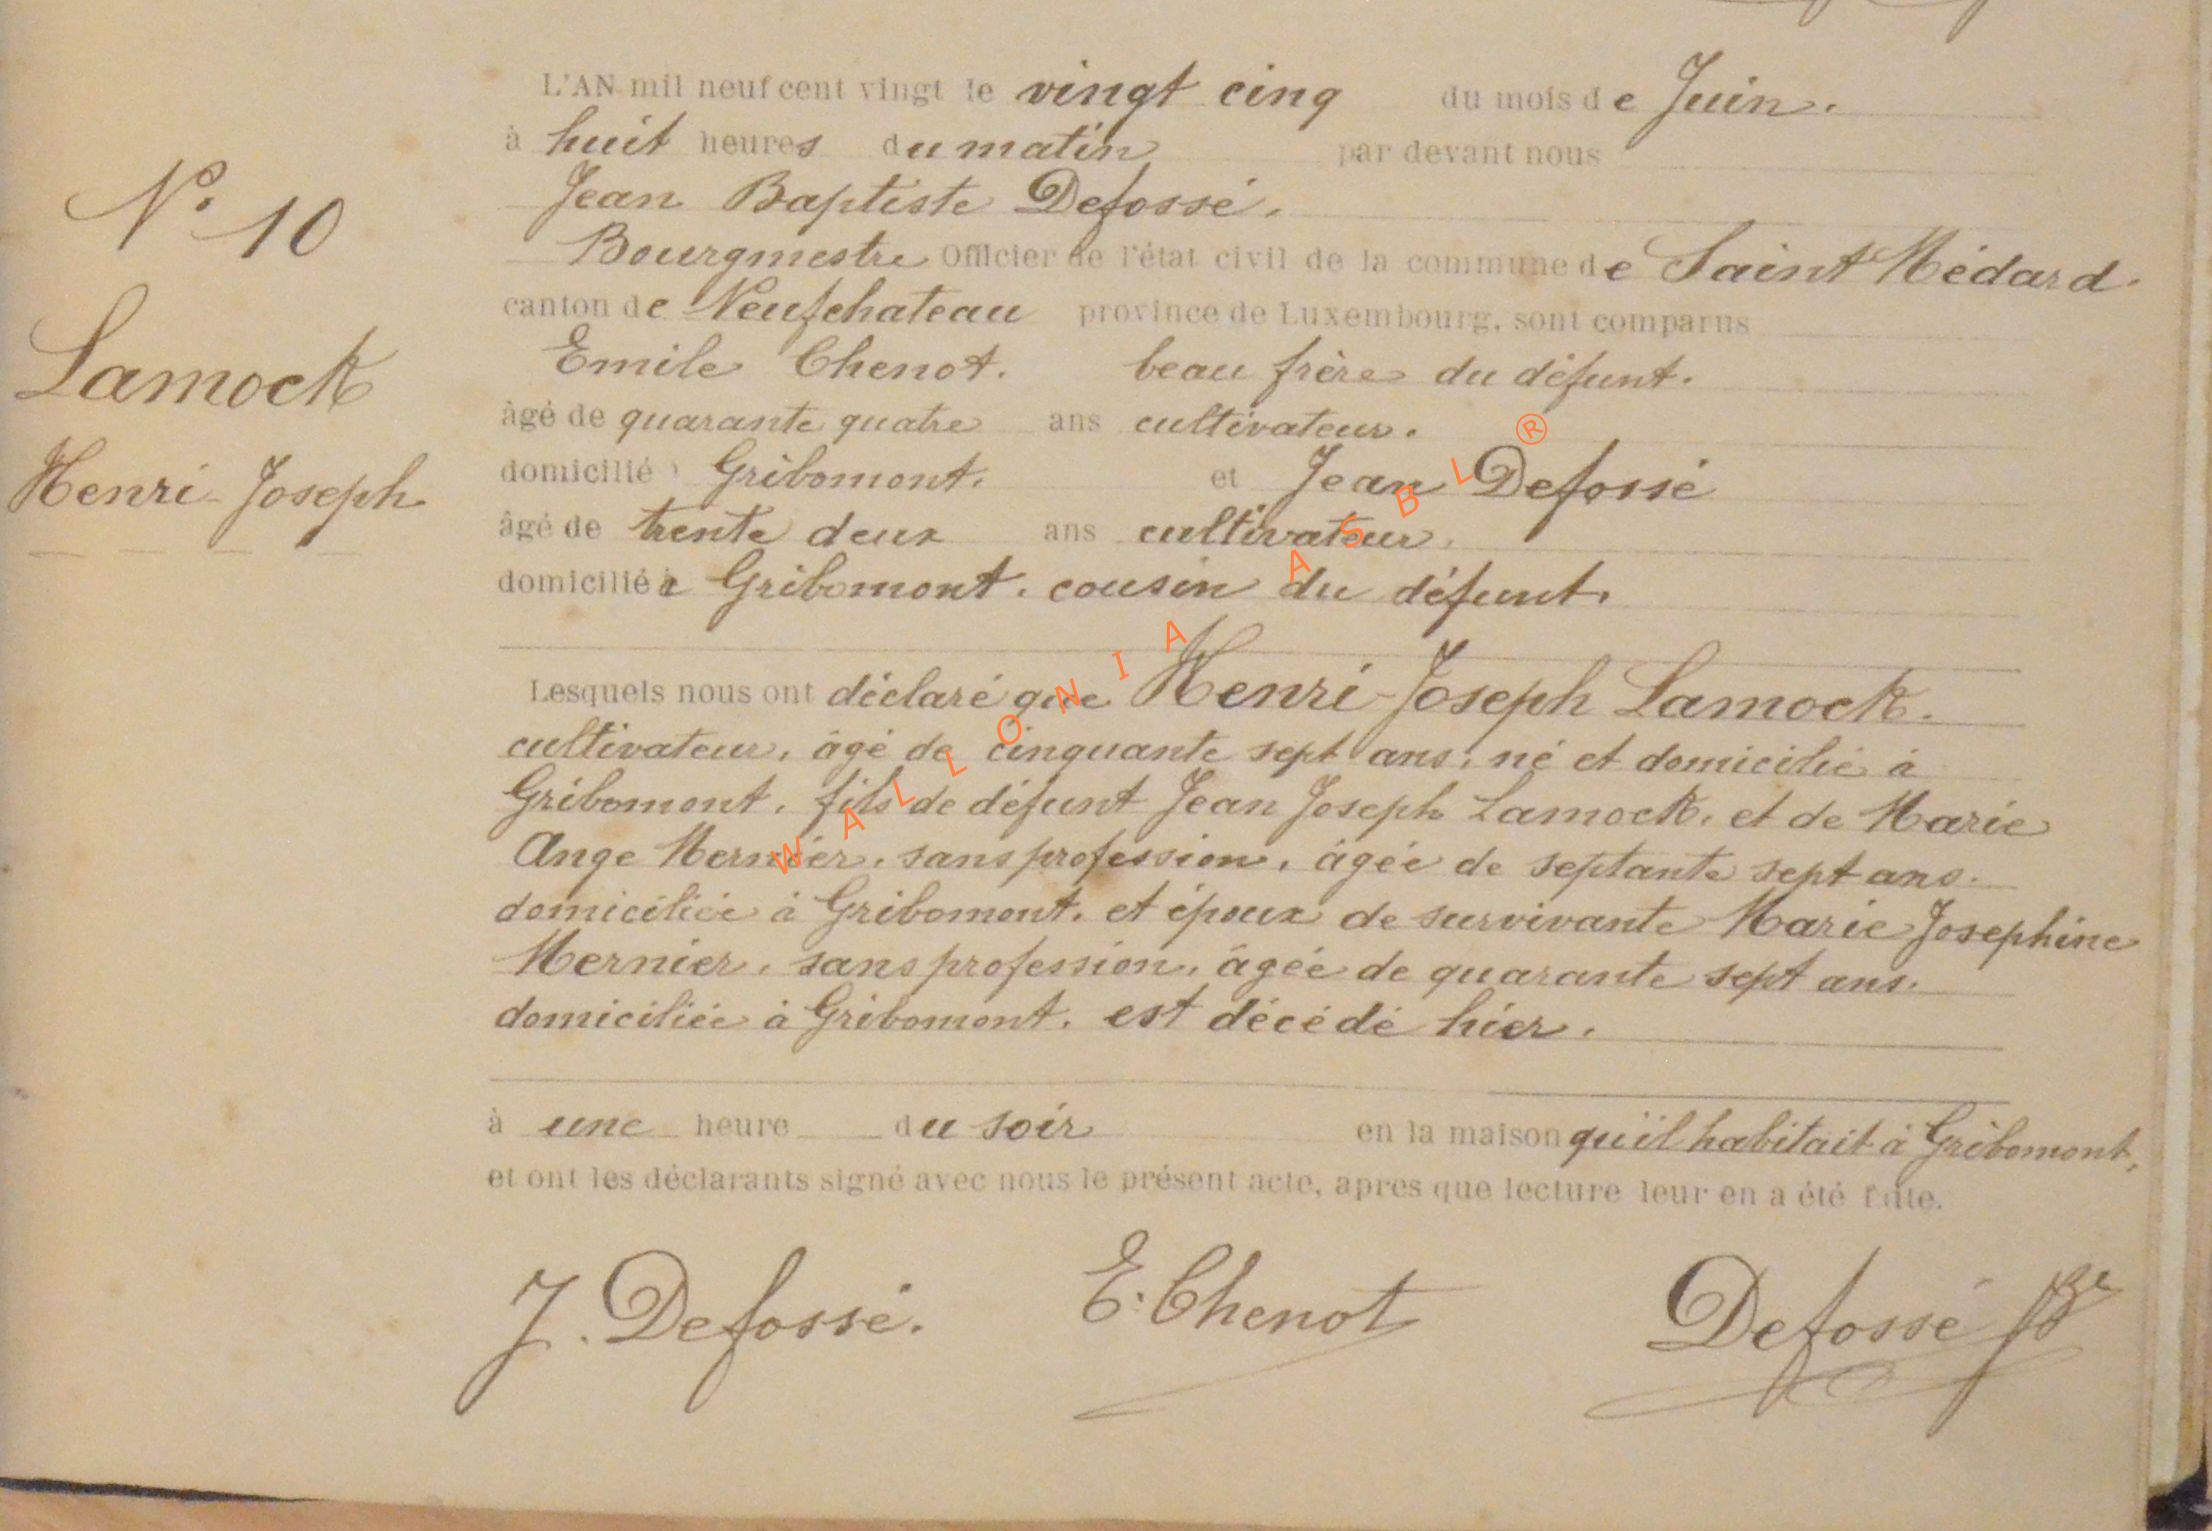 L'AN mil neuf cent vingt le vingt cinq du mois de Juin.
à huit heures du matin par devant nous
Jean Baptiste Defossé.
Bourgmestre Officier de l'état civil de la commune de Saint Médard.
canton de Neufchateau province de Luxembourg, sont comparus
Emile Chenot. beau frère du défunt.
âgé de quarante quatre ans cultivateur.
domicilié à Gribomont. et Jean Defossé
âgé de trente deux ans cultivateur.
domicilié à Gribomont. cousin du défunt.
N° 10
Lamock
Henri-Joseph
Lesquels nous ont déclaré que Henri-Joseph Lamock.
cultivateur, âgé de cinquante sept ans, né et domicilié à
Gribomont, fils de défunt Jean Joseph Lamock, et de Marie
Ange Mernier, sans profession, âgée de septante sept ans.
domiciliée à Gribomont, et époux de survivante Marie Josephine
Mernier, sans profession, âgée de quarante sept ans.
domiciliée à Gribomont. est décédé hier.
à une heure du soir en la maison qu'il habitait à Gribomont,
et ont les déclarants signé avec nous le présent acte, apres que lecture leur en a été faite.
J. Defossé. E. Chenot Defossé
WALLONIA ASBL ®